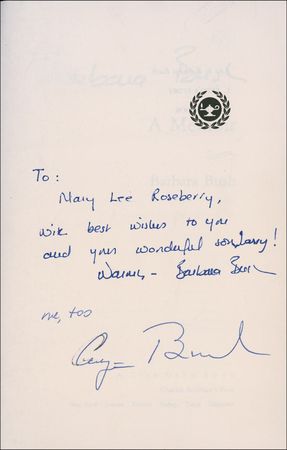 To:
Mary Lee Roseberry,
with best wishes to you
and your wonderful son, Larry!
Warmly - Barbara Bush
me, too
George Bush
A Memoir
Barbara Bush